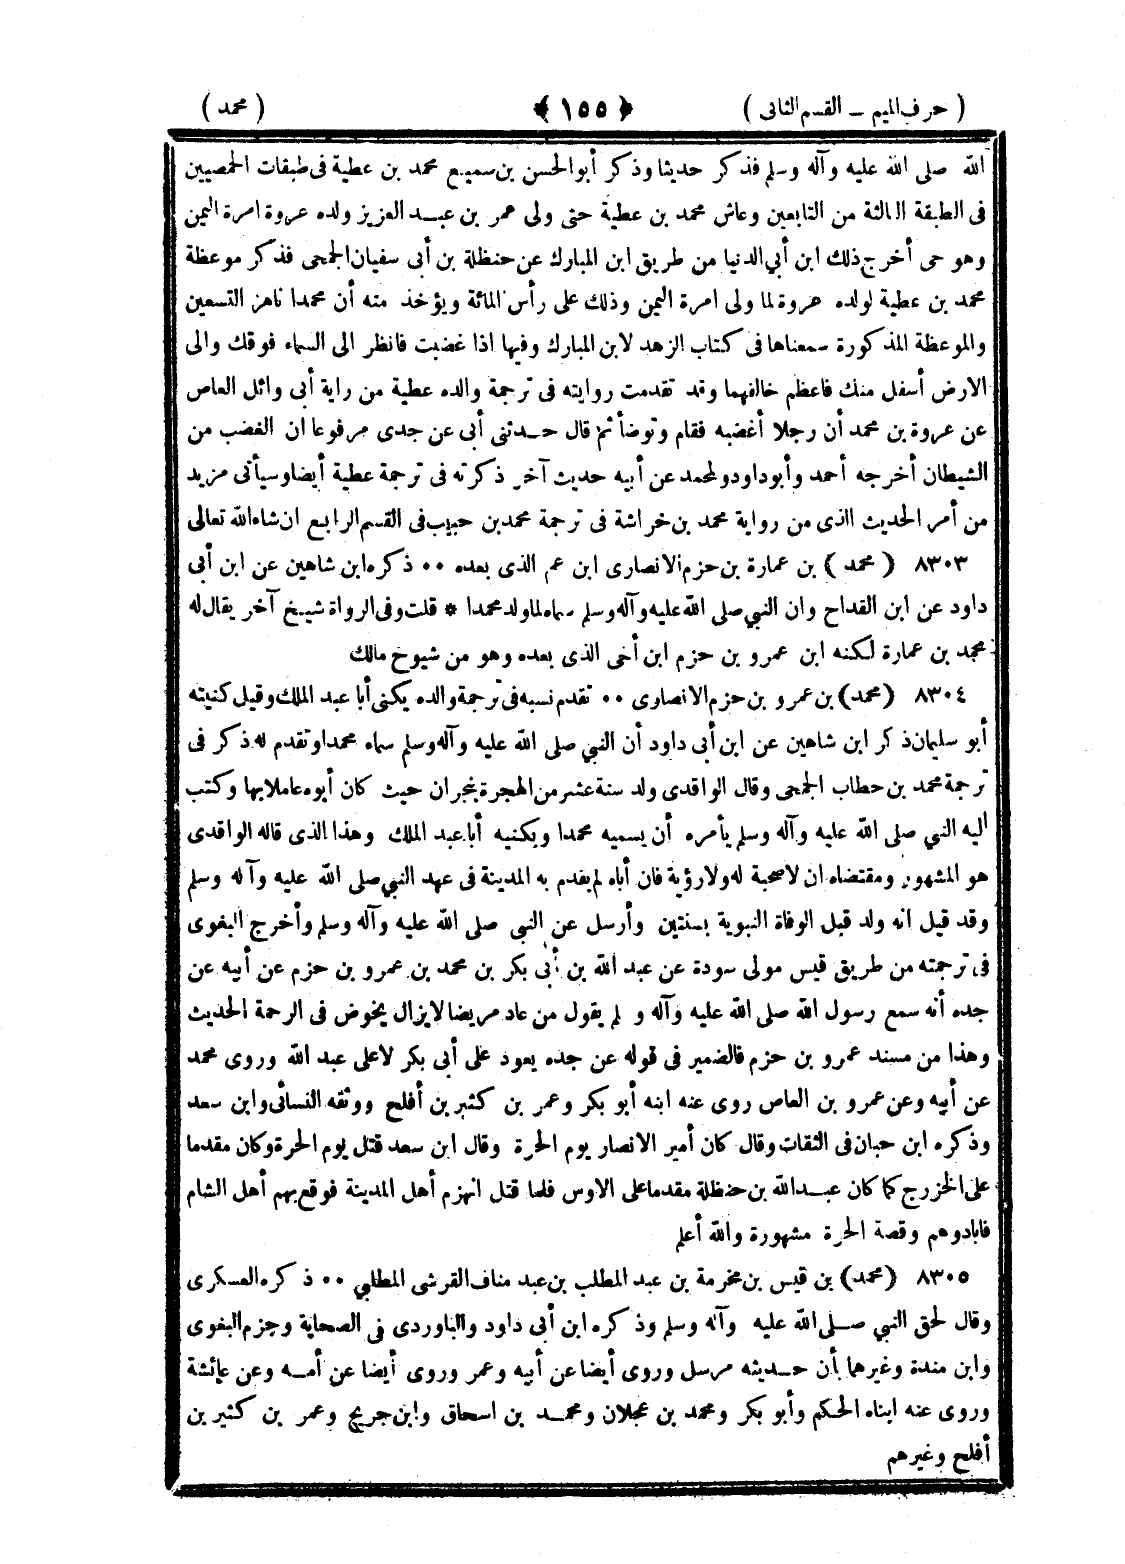 ( حرف الميم ــ القسم الثانى ) ﴿ ١٥٥ ﴾ ( محمد )
الله صلى الله عليه وآله وسلم فذكر حديثا وذكر أبو الحسن بن سميع محمد بن عطية فى طبقات الحمصيين
فى الطبقة الثالثة من التابعين وعاش محمد بن عطية حتى ولى عمر بن عبد العزيز ولده عروة امرة اليمن
وهو حى أخرج ذلك ابن أبي الدنيا من طريق ابن المبارك عن حنظلة بن أبى سفيان الجمحى فذكر موعظة
محمد بن عطية لولده عروة لما ولى امرة اليمن وذلك على رأس المائة ويؤخذ منه أن محمدا ناهز التسعين
والموعظة المذكورة سمعناها فى كتاب الزهد لابن المبارك وفيها اذا غضبت فانظر الى السماء فوقك والى
الارض أسفل منك فاعظم خالقهما وقد تقدمت روايته فى ترجمة والده عطية من راية أبى وائل العاص
عن عروة بن محمد أن رجلا أغضبه فقام وتوضأ ثم قال حدثنى أبى عن جدى مرفوعا ان الغضب من
الشيطان أخرجه أحمد وأبو داود ولمحمد عن أبيه حديث آخر ذكرته فى ترجمة عطية أيضا وسيأتى مزيد
من أمر الحديث الذى من رواية محمد بن خراشة فى ترجمة محمد بن حبيب فى القسم الرابع ان شاء الله تعالى
٨٣٠٣ ( محمد ) بن عمارة بن حزم الانصارى ابن عم الذى بعده ٠٠ ذكره ابن شاهين عن ابن أبى
داود عن ابن القداح وان النبي صلى الله عليه وآله وسلم سماه لما ولد محمدا * قلت وفى الرواة شيخ آخر يقال له
محمد بن عمارة لكنه ابن عمرو بن حزم ابن أخى الذى بعده وهو من شيوخ مالك
٨٣٠٤ ( محمد ) بن عمرو بن حزم الانصارى ٠٠ تقدم نسبه فى ترجمة والده يكنى أبا عبد الملك وقيل كنيته
أبو سليمان ذكر ابن شاهين عن ابن أبى داود أن النبي صلى الله عليه وآله وسلم سماه محمدا وتقدم له ذكر فى
ترجمة محمد بن حطاب الجمحى وقال الواقدى ولد سنة عشر من الهجرة بنجران حيث كان أبوه عاملا بها وكتب
اليه النبي صلى الله عليه وآله وسلم يأمره أن يسميه محمدا ويكنيه أبا عبد الملك وهذا الذى قاله الواقدى
هو المشهور ومقتضاه ان لا صحبة له ولا رؤية فان أباه لم يقدم به المدينة فى عهد النبي صلى الله عليه وآله وسلم
وقد قيل انه ولد قبل الوفاة النبوية بسنتين وأرسل عن النبى صلى الله عليه وآله وسلم وأخرج البغوى
فى ترجمته من طريق قيس مولى سودة عن عبد الله بن أبى بكر بن محمد بن عمرو بن حزم عن أبيه عن
جده أنه سمع رسول الله صلى الله عليه وآله و لم يقول من عاد مريضا لا يزال يخوض فى الرحمة الحديث
وهذا من مسند عمرو بن حزم فالضمير فى قوله عن جده يعود على أبى بكر لا على عبد الله وروى محمد
عن أبيه وعن عمرو بن العاص روى عنه ابنه أبو بكر وعمر بن كثير بن أفلح ووثقه النسائى وابن سعد
وذكره ابن حبان فى الثقات وقال كان أمير الانصار يوم الحرة وقال ابن سعد قتل يوم الحرة وكان مقدما
على الخزرج كما كان عبد الله بن حنظلة مقدما على الاوس فلما قتل انهزم أهل المدينة فوقع بهم أهل الشام
فابادوهم وقصة الحرة مشهورة والله أعلم
٨٣٠٥ ( محمد ) بن قيس بن مخرمة بن عبد المطلب بن عبد مناف القرشى المطلبي ٠٠ ذكره العسكرى
وقال لحق النبي صلى الله عليه وآله وسلم وذكره ابن أبى داود والباوردى فى الصحابة وجزم البغوى
وابن مندة وغيرهما بأن حديثه مرسل وروى أيضا عن أبيه وعمر وروى أيضا عن أمه وعن عائشة
وروى عنه ابناه الحكم وأبو بكر ومحمد بن عجلان ومحمد بن اسحاق وابن جريج وعمر بن كثير بن
أفلح وغيرهم